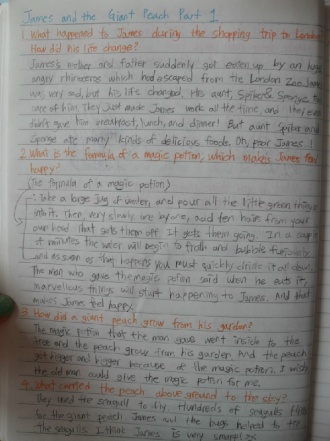 James and the Giant Peach Part 1
1. What happened to James during the shopping trip to London?
How did his life change?
James's mother and father suddenly got eaten up by an huge
angry rhinoceros which had escaped from the London Zoo. James
was very sad, but his life changed. His aunt, Spiker & Sponge
care of him. They just made James work all the time and they even
didn't give him breakfast, lunch, and dinner! But aunt Spiker and
Sponge ate many kinds of delicious foods. Oh, poor James..!
2. What is the formula of a magic potion, which makes James feel
happy?
(The formula of a magic potion)
: Take a large jug of water, and pour all the little green things
into it. Then, very slowly, one by one, add ten hairs from your
own head. That sets them off. It gets them going. In a couple
of minutes the water will begin to froth and bubble furiously
and as soon as that happens you must quickly drink it all down.
The man who gave the magic potion said when he eats it,
marvellous things will start happening to James. And that
makes James feel happy.
3. How did a giant peach grow from his garden?
The magic potion that the man gave went inside to the
tree and the peach grew from his garden. And the peach
got bigger and bigger because of the magic potion. I wish
the old man could give the magic potion for me.
4. What carried the peach above ground to the sky?
They used the seagull to fly. Hundreds of seagulls
for the giant peach. James and the bugs helped to
the seagulls. I think James is very smart